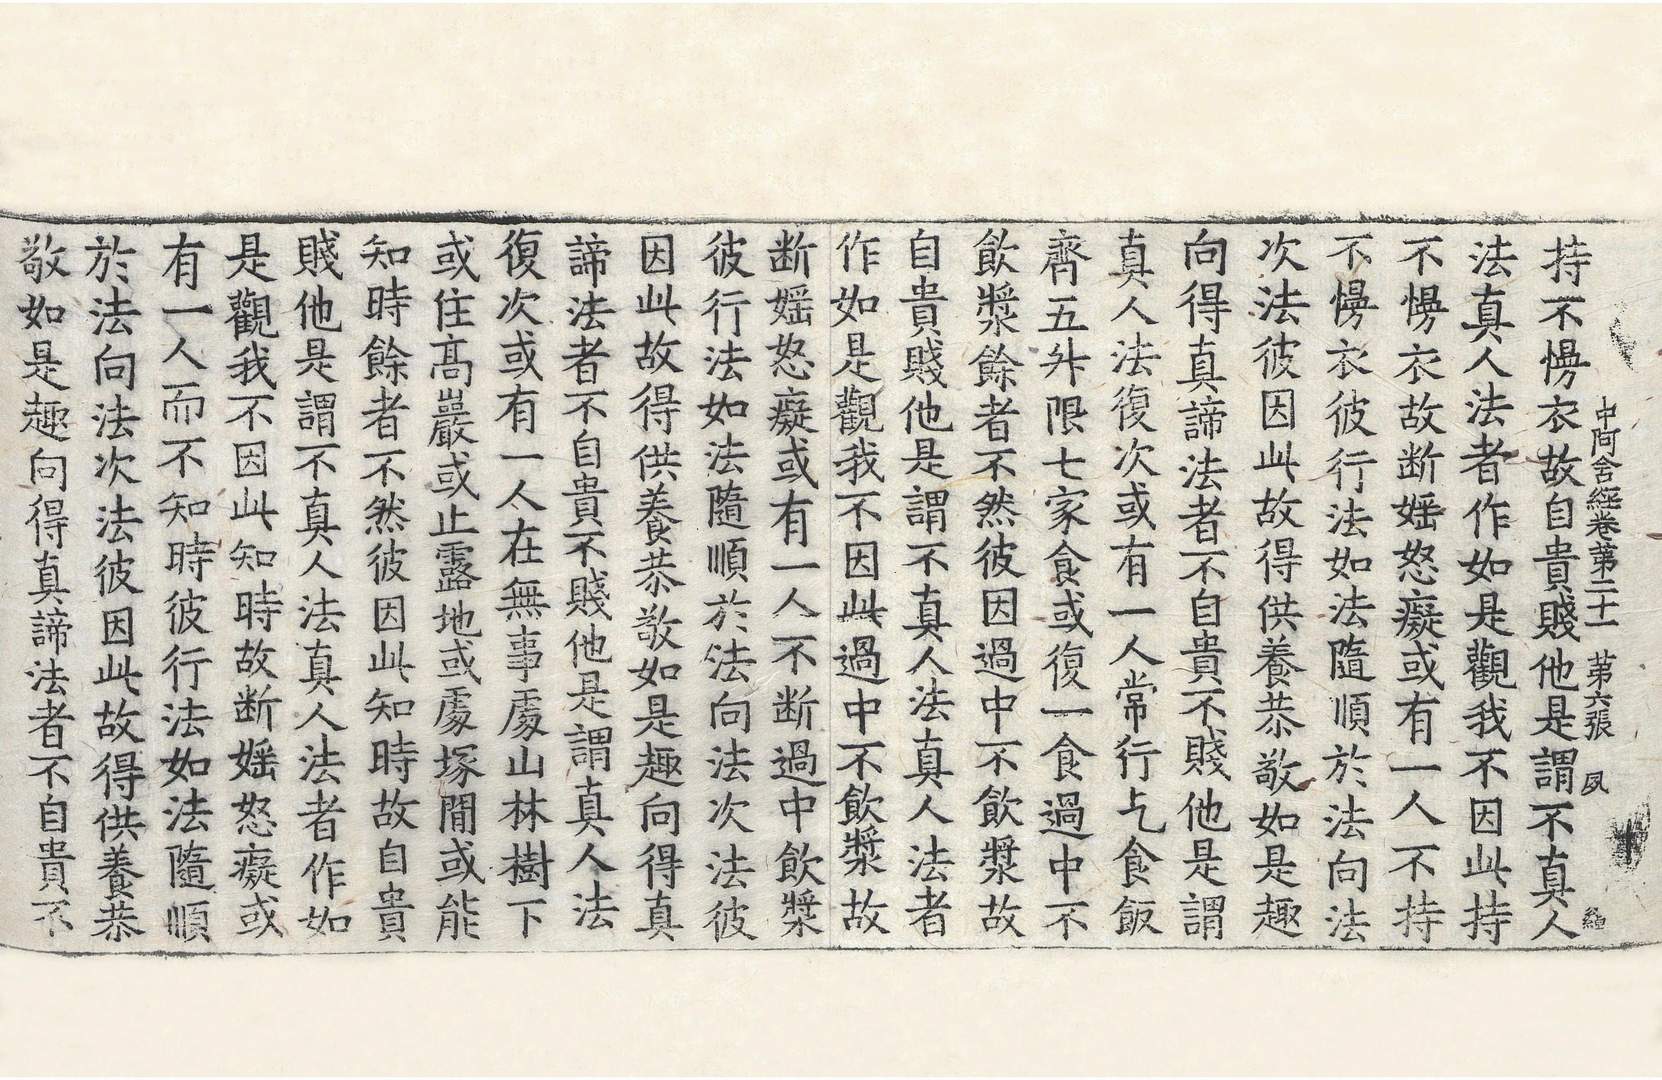 中阿含經卷第二十一　第六張　夙
持不慢衣故自貴賤他是謂不真人
法真人法者作如是觀我不因此持
不慢衣故断婬怒癡或有一人不持
不慢衣彼行法如法隨順於法向法
次法彼因此故得供養恭敬如是趣
向得真諦法者不自貴不賤他是謂
真人法復次或有一人常行乞食飯
齊五升限七家食或復一食過中不
飲漿餘者不然彼因過中不飲漿故
自貴賤他是謂不真人法真人法者
作如是觀我不因此過中不飲漿故
断婬怒癡或有一人不断過中飲漿
彼行法如法隨順於法向法次法彼
因此故得供養恭敬如是趣向得真
諦法者不自貴不賤他是謂真人法
復次或有一人在無事處山林樹下
或住髙巖或止露地或處塚間或能
知時餘者不然彼因此知時故自貴
賤他是謂不真人法真人法者作如
是觀我不因此知時故断婬怒癡或
有一人而不知時彼行法如法隨順
於法向法次法彼因此故得供養恭
敬如是趣向得真諦法者不自貴不